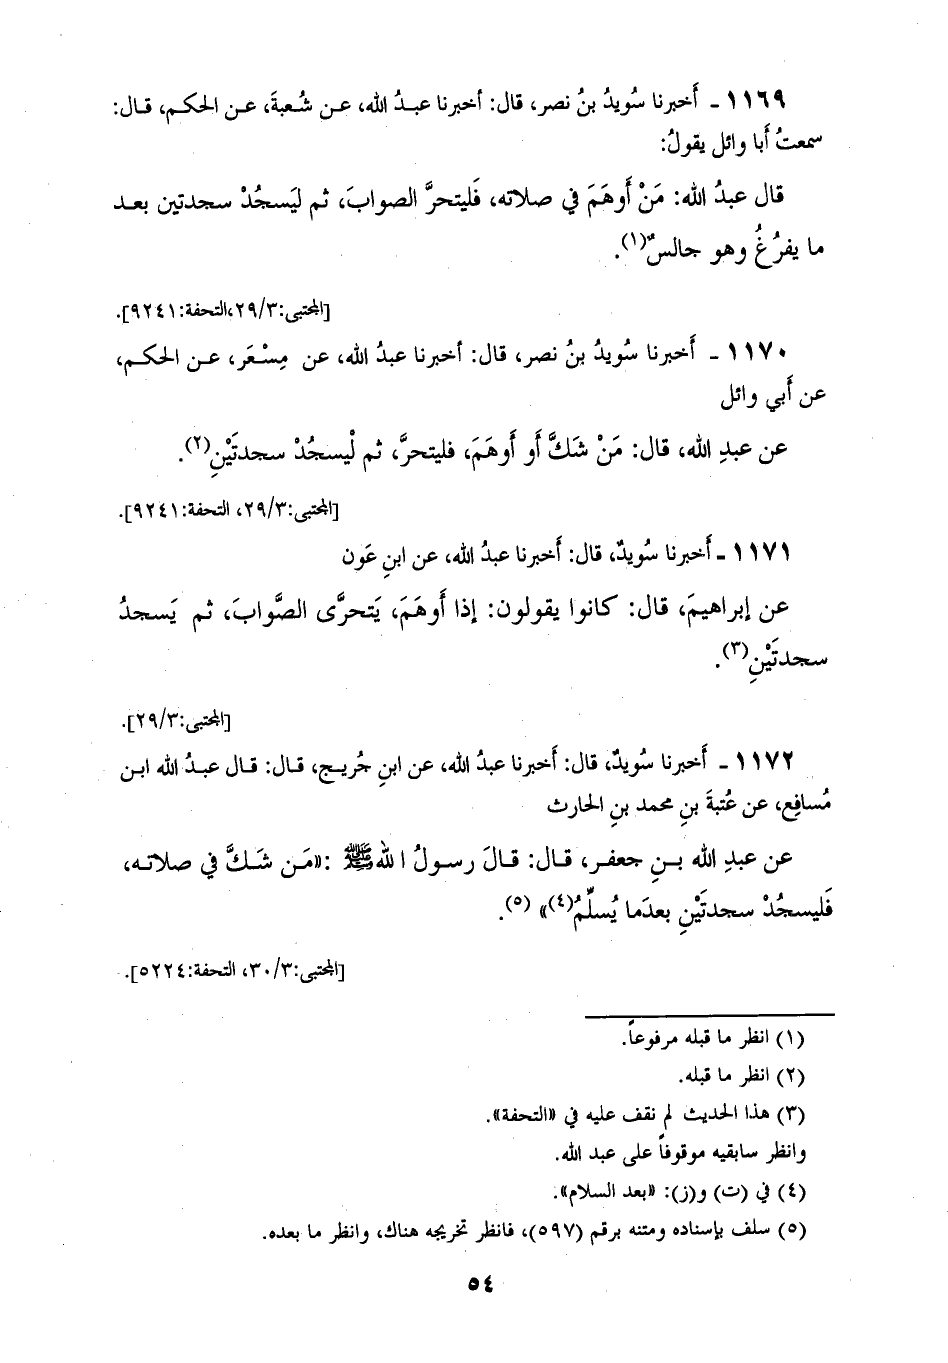 ١١٦٩ ـ أَخبرنا سُويدُ بنُ نصر، قال: أخبرنا عبدُ الله، عن شُعبةَ، عن الحكم، قال:
سمعتُ أَبا وائل يقولُ:
قال عبدُ الله: مَنْ أَوهَمَ في صلاته، فَليتحرَّ الصوابَ، ثم ليَسجُدْ سجدتين بعد
ما يفرُغُ وهو جالسٌ(١).
[المجتبى:٢٩/٣،التحفة:٩٢٤١].
١١٧٠ ـ أَخبرنا سُويدُ بنُ نصر، قال: أخبرنا عبدُ الله، عن مِسْعَر، عن الحكم،
عن أَبي وائل
عن عبدِ الله، قال: مَنْ شَكَّ أَو أَوهَمَ، فليتحرَّ، ثم لْيسجُدْ سجدتَيْنِ(٢).
[المجتبى:٢٩/٣، التحفة:٩٢٤١].
١١٧١ ـ أَخبرنا سُويدٌ، قال: أَخبرنا عبدُ الله، عن ابنِ عَون
عن إبراهيمَ، قال: كانوا يقولون: إذا أَوهَمَ، يَتحرَّى الصَّوابَ، ثم يَسجدُ
سجدتَيْنِ(٣).
[المجتبى:٢٩/٣].
١١٧٢ ـ أَخبرنا سُويدٌ، قال: أَخبرنا عبدُ الله، عن ابنِ جُريج، قال: قال عبدُ الله ابن
مُسافِع، عن عُتبةَ بنِ محمد بنِ الحارث
عن عبدِ الله بنِ جعفر، قال: قالَ رسولُ الله ﷺ :«مَن شَكَّ في صلاته،
فَليسجُدْ سجدتَيْنِ بعدَما يُسلِّمُ(٤)» (٥).
[المجتبى:٣٠/٣، التحفة:٥٢٢٤].
(١) انظر ما قبله مرفوعاً.
(٢) انظر ما قبله.
(٣) هذا الحديث لم نقف عليه في «التحفة».
وانظر سابقيه موقوفاً على عبد الله.
(٤) في (ت) و(ز): «بعد السلام».
(٥) سلف بإسناده ومتنه برقم (٥٩٧)، فانظر تخريجه هناك، وانظر ما بعده.
٥٤